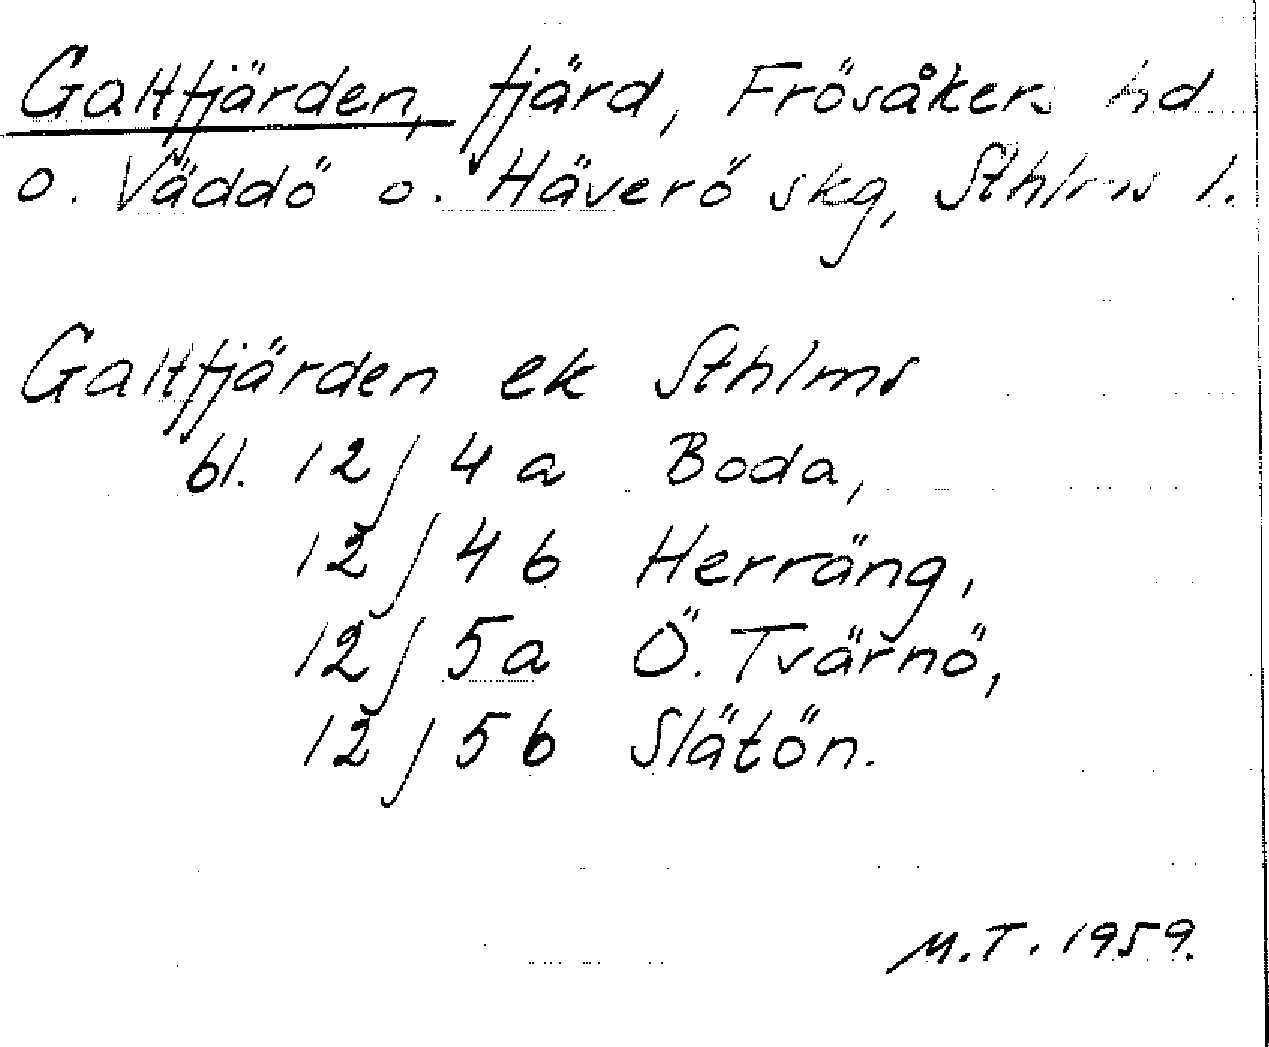 Galtfjärden, fjärd, Frösåkers hd
o. Väddö o. Häverö skg, Sthlms l.
Galtfjärden ek Sthlms
bl. 12 J 4 a Boda,
12 J 4 b Herräng,
12 J 5 a Ö. Tvärnö,
12 J 5 b Slätön.
M.T. 1959.